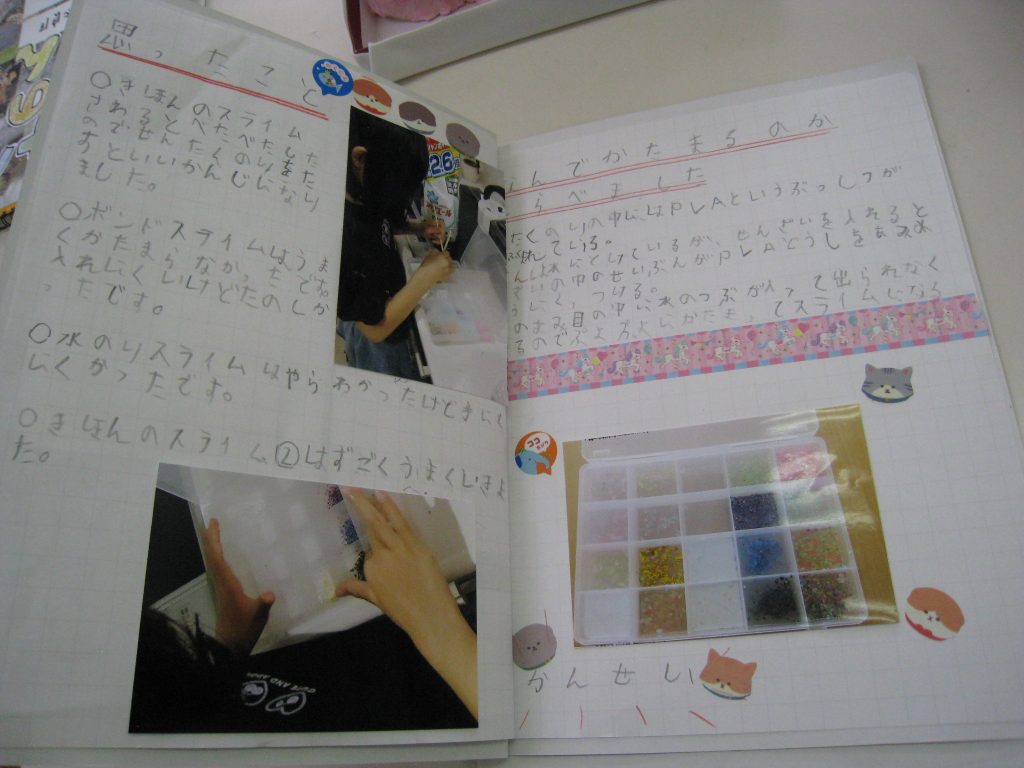 思ったこと
○きほんのスライム
さわるとべたべたした
のでせんたくのりをたり
すといいかんじになり
ました。
○ボンドスライムはうま
くかたまらなかったです。
とれにくいけどたのしか
ったです。
○水のりスライムはやらわかったけど手にも
にくかったです。
○きほんのスライム②はすごくうまくいきま
た。
んでかたまるのか
らべました
たくのりの中にはPLAというぶっしつが
れている。
水にとけているが、せんざいを入れると
ざいの中のせいぶんがPLAどうしをあみあ
うにくっつける。
のあみ目の中に水のつぶが入って出られなく
るのでぷよぷよにかたまってスライムになる
ココ
かんせい